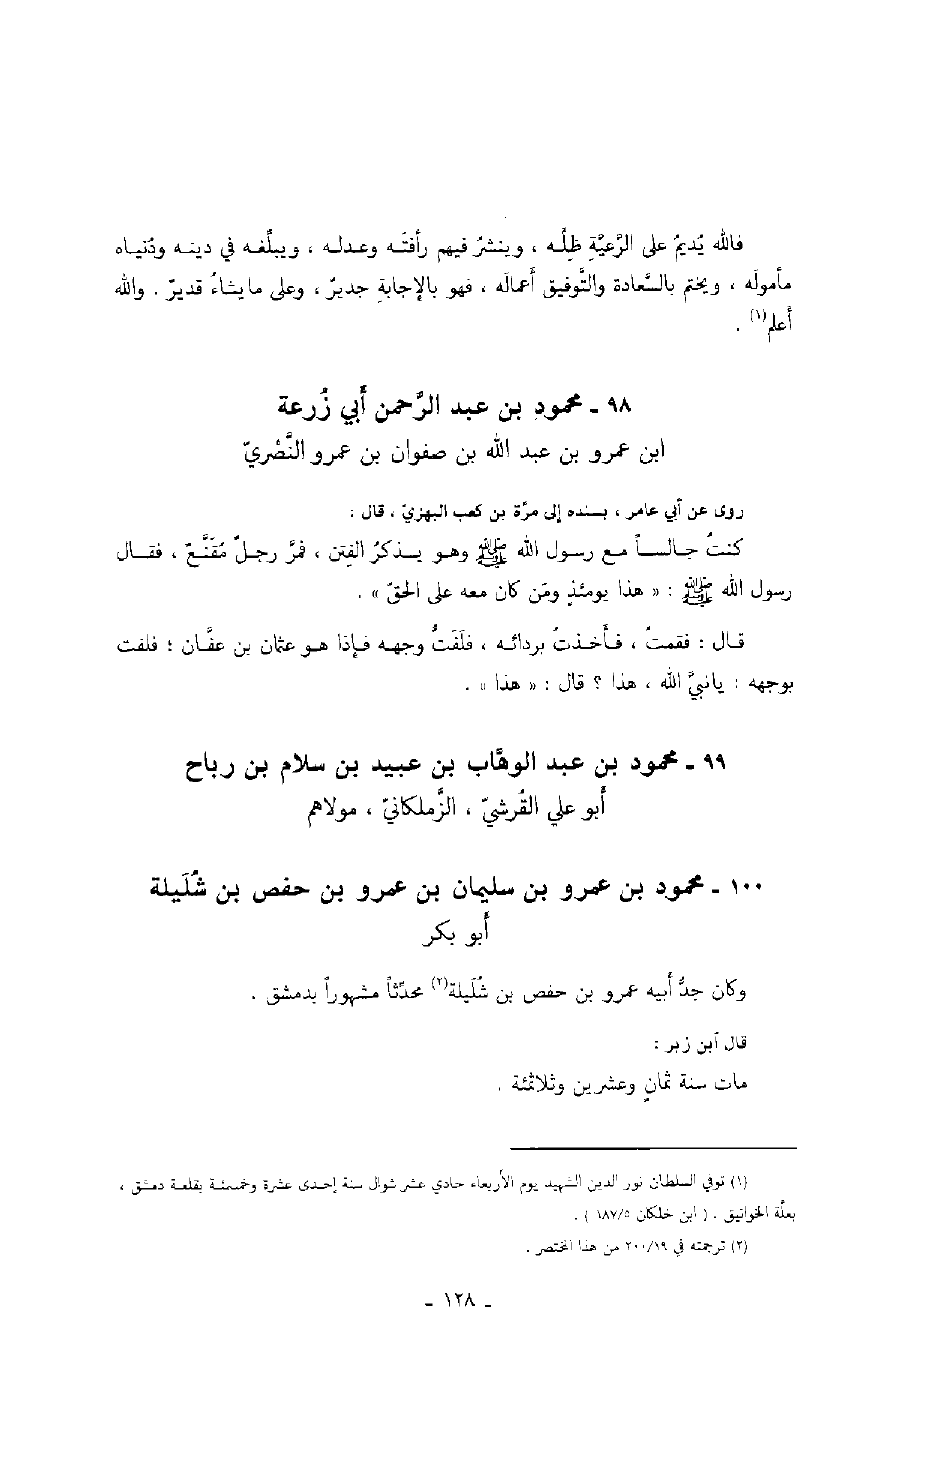 فالله يُديمُ على الرَّعيَّةِ ظِلَّه ، وينشرُ فيهم رأفتَه وعدله ، ويبلِّغه في دينه ودُنياه
مأمولَه ، ويختم بالسَّعادة والتَّوفيق أعمالَه ، فهو بالإجابةِ جديرٌ ، وعلى ما يشاءُ قديرٌ . والله
أعلم(١) .
٩٨ ـ محمود بن عبد الرَّحمن أبي زُرعة
ابن عمرو بن عبد الله بن صفوان بن عمرو النَّصْريّ
روى عن أبي عامر ، بسنده إلى مرَّة بن كعب البهزيّ ، قال :
كنتُ جالساً مع رسول الله ﷺ وهو يذكرُ الفِتن ، فمرَّ رجلٌ مُقَنَّعٌ ، فقال
رسول الله ﷺ : « هذا يومئذٍ ومَن كان معه على الحقّ » .
قال : فقمتُ ، فأخذتُ بردائه ، فلَفَتُّ وجهه فإذا هو عثمان بن عفَّان ؛ فلفت
بوجهه : يا نبيَّ الله ، هذا ؟ قال : « هذا » .
٩٩ ـ محمود بن عبد الوهَّاب بن عبيد بن سلام بن رباح
أبو علي القُرشيّ ، الزَّملكانيّ ، مولاهم
١٠٠ ـ محمود بن عمرو بن سليمان بن عمرو بن حفص بن شُلَيلة
أبو بكر
وكان جدُّ أبيه عمرو بن حفص بن شُلَيلة(٢) محدِّثاً مشهوراً بدمشق .
قال ابن زبر :
مات سنة ثمانٍ وعشرين وثلاثمئة .
(١) توفي السلطان نور الدين الشهيد يوم الأربعاء حادي عشر شوال سنة إحدى عشرة وخمسمئة بقلعة دمشق ،
بعلَّة الخوانيق . ( ابن خلكان ١٨٧/٥ ) .
(٢) ترجمته في ٢٠٠/١٩ من هذا المختصر .
ـ ١٢٨ ـ